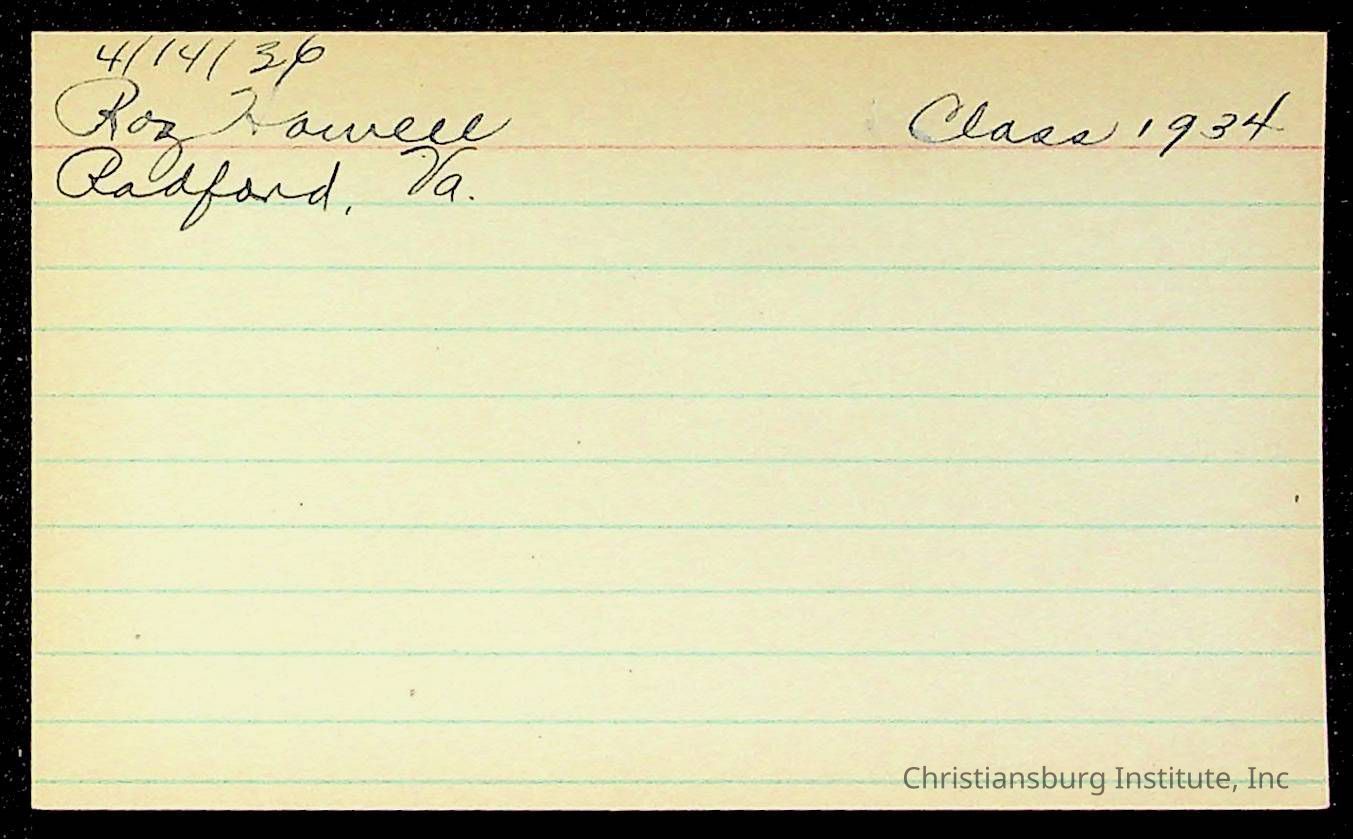 4/14/36
Roy Howell Class 1934
Radford, Va.
Christiansburg Institute, Inc